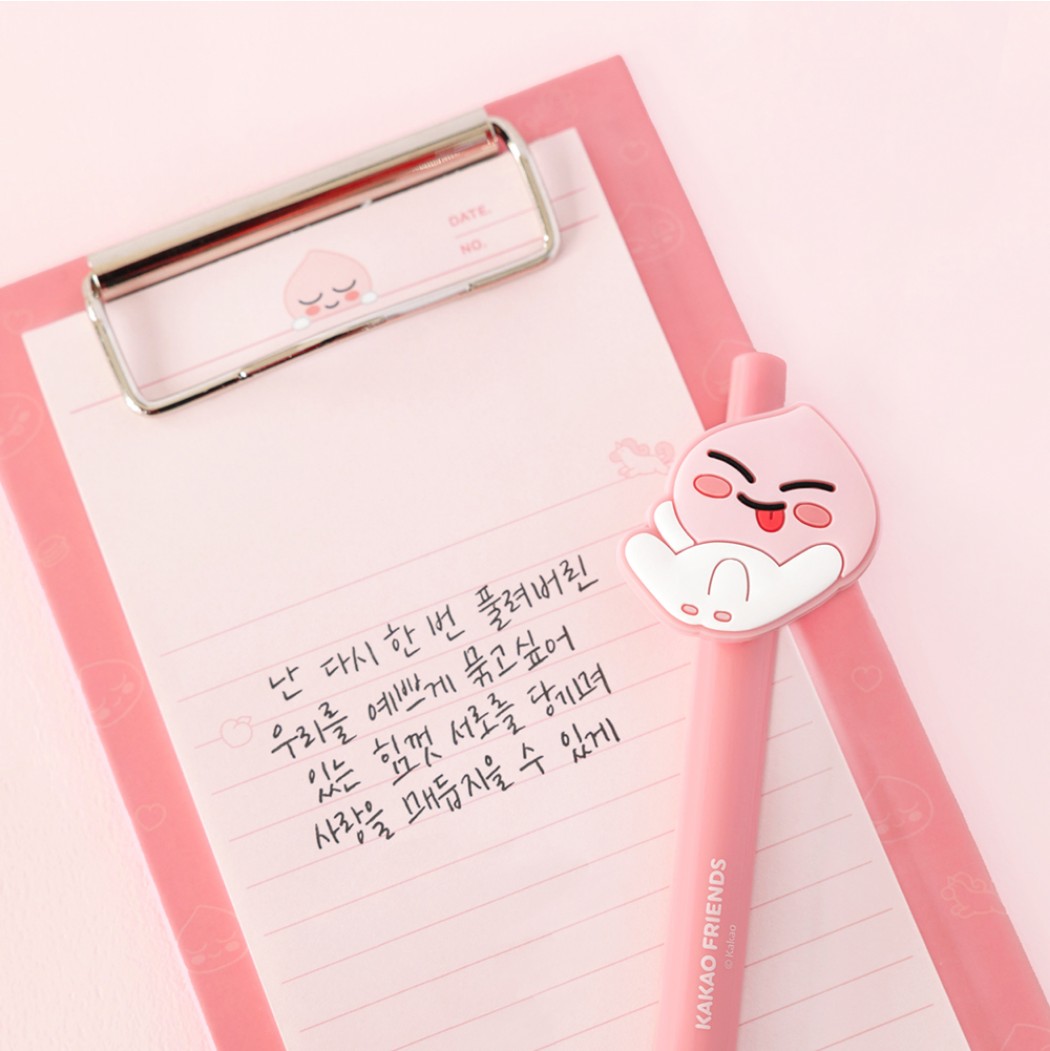 DATE.
NO.
난 다시 한 번 풀려버린
우리를 예쁘게 묶고싶어
있는 힘껏 서로를 당기며
사랑을 매듭지을 수 있게
KAKAO FRIENDS
© Kakao